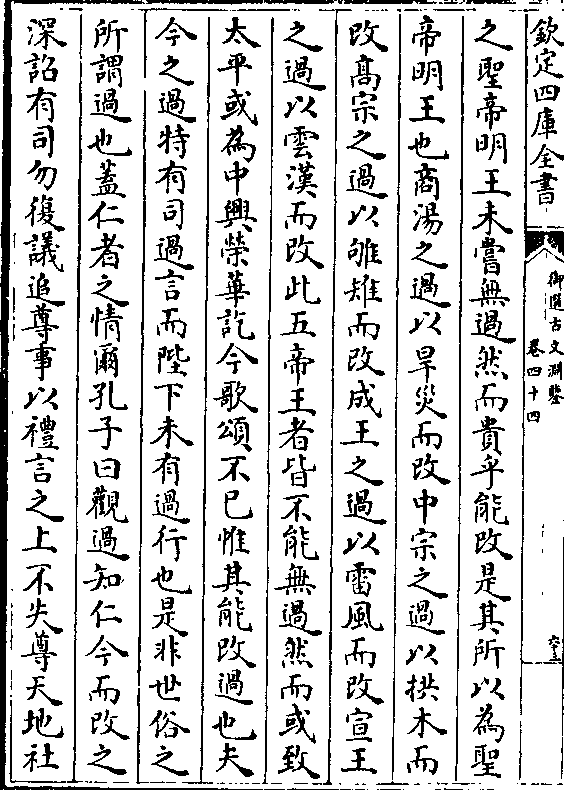 欽定四庫全書
御選古文淵鑒
卷四十四
之聖帝明王未嘗無過然而貴乎能改是其所以為聖
帝明王也商湯之過以旱災而改中宗之過以拱木而
改髙宗之過以雊雉而改成王之過以雷風而改宣王
之過以雲漢而改此五帝王者皆不能無過然而或致
太平或為中興榮華訖今歌頌不已惟其能改過也夫
今之過特有司過言而陛下未有過行也是非世俗之
所謂過也蓋仁者之情爾孔子曰觀過知仁今而改之
深詔有司勿復議追尊事以禮言之上不失尊天地社